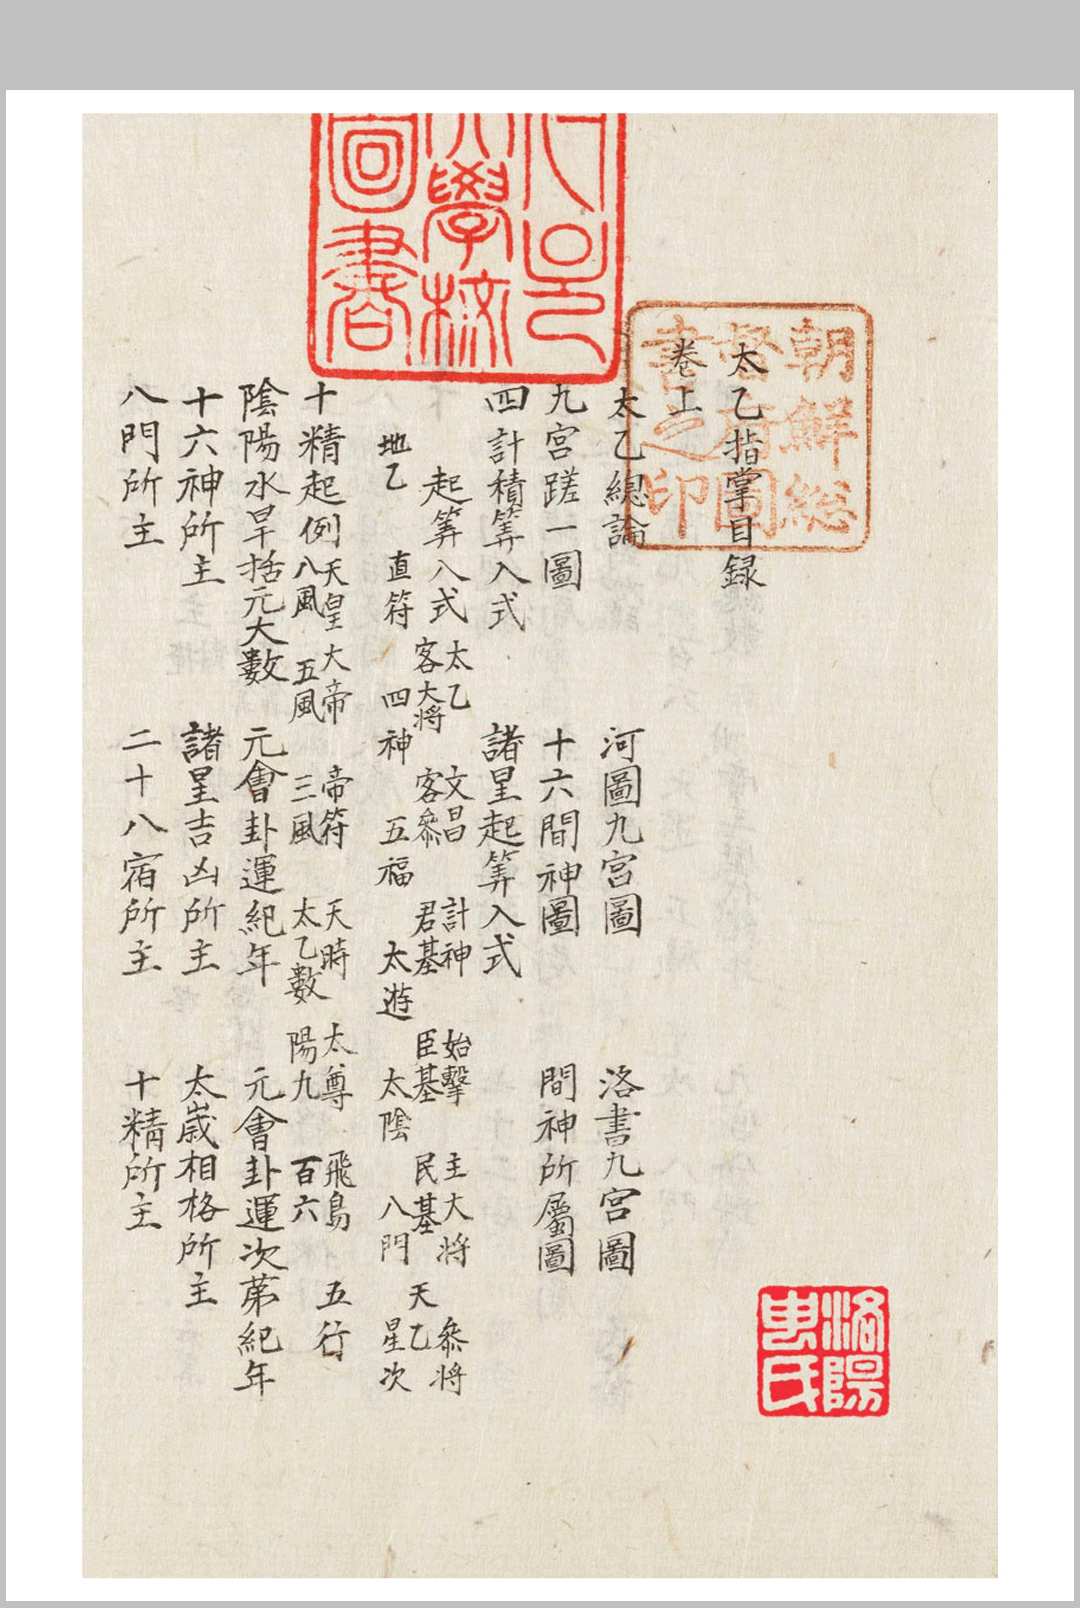 太乙指掌目録
卷上
太乙總論 河圖九宮圖 洛書九宮圖
九宮蹉一圖 十六間神圖 間神所屬圖
四計積筭入式 諸星起筭入式
起筭入式 太乙 文昌 計神 始擊 主大將 參將
客大將 客參 君基 臣基 民基 天乙
地乙 直符 四神 五福 太遊 太陰 八門 星次
十精起例 天皇 大帝 帝符 天時 太尊 飛鳥 五行
八風 五風 三風 太乙數 陽九 百六
陰陽水旱括元大數 元會卦運紀年 元會卦運次苐紀年
十六神所主 諸星吉凶所主 太歲相格所主
八門所主 二十八宿所主 十精所主
朝鮮総
督府圖
書之印
學校
圖書
洛陽